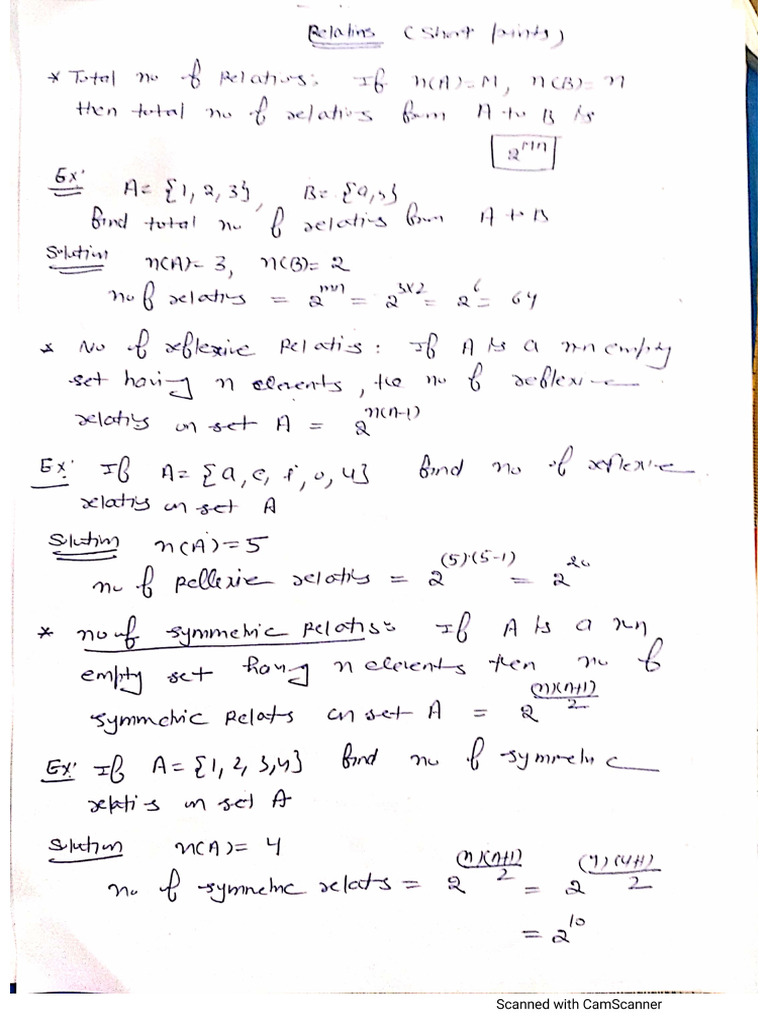 Relations (Short points)
* Total no of Relations: If n(A)=M, n(B)=n
then total no of relations from A to B is
2^{mn}
Ex: A= {1, 2, 3}, B= {a, b}
find total no of relations from A to B
Solution n(A)= 3, n(B)= 2
no of relations = 2^{mn} = 2^{3x2} = 2^6 = 64
* No of reflexive Relations: If A is a non empty
set having n elements, the no of reflexive
relations on set A = 2^{n(n-1)}
Ex: If A= {a, e, i, o, u} find no of reflexive
relations on set A
Solution n(A)=5
no of reflexive relations = 2^{(5)(5-1)} = 2^{20}
* no of symmetric Relations: If A is a non
empty set having n elements then no of
symmetric Relations on set A = 2^{(n)(n+1)/2}
Ex: If A= {1, 2, 3, 4} find no of symmetric
relations on set A
Solution n(A)= 4
no of symmetric relations = 2^{(n)(n+1)/2} = 2^{(4)(4+1)/2}
= 2^{10}
Scanned with CamScanner